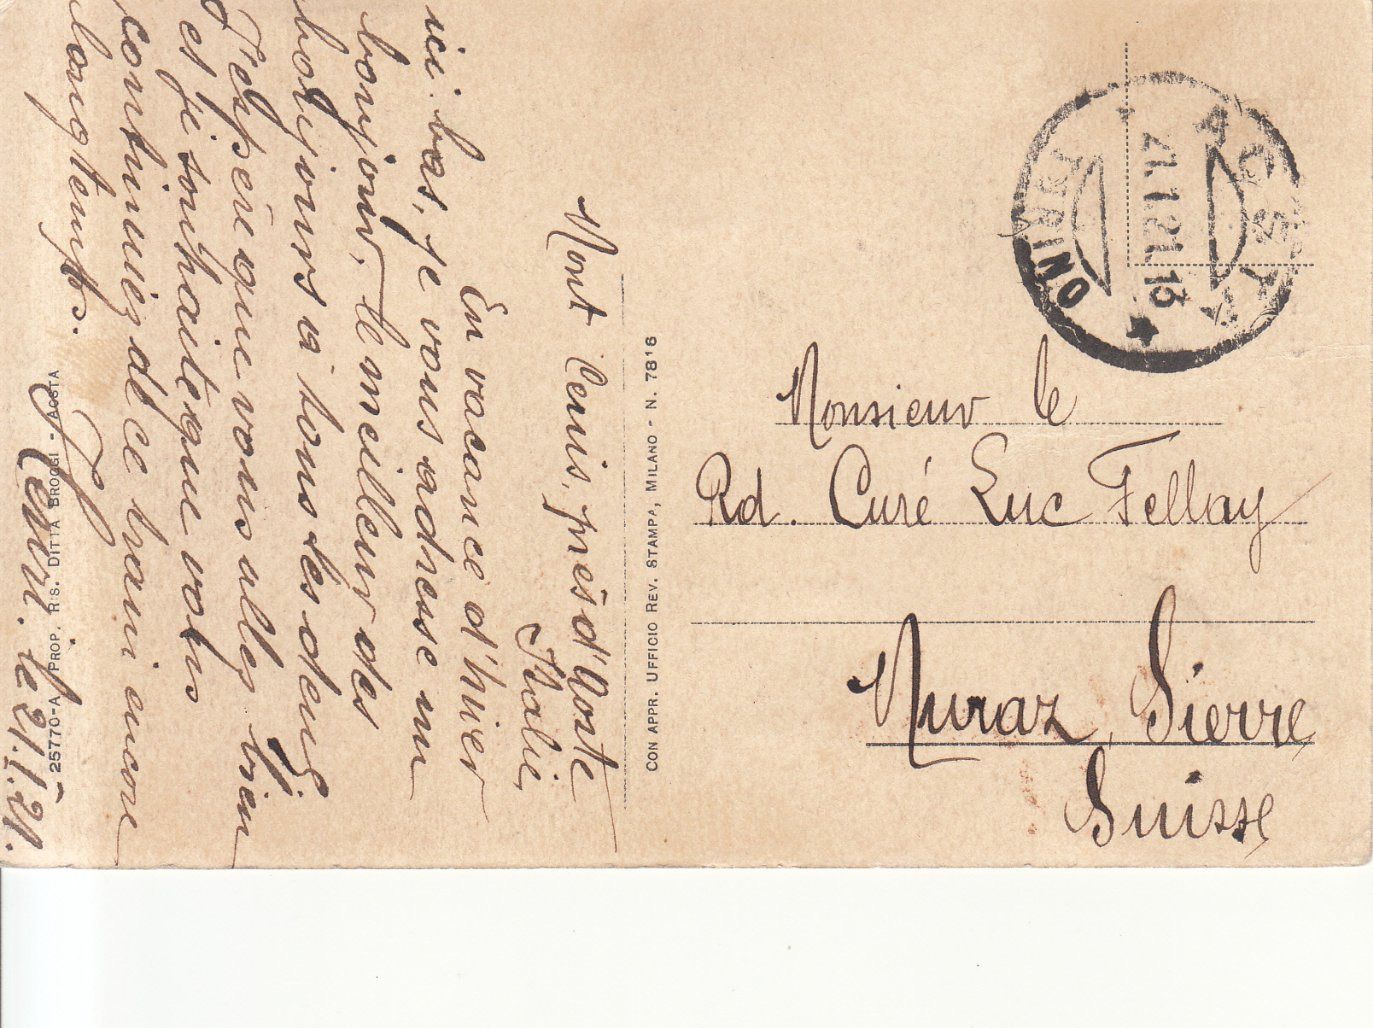 Mont Cenis, près d'Aoste
Italie,
En vacance d'hiver
ici-bas, je vous adresse un
bonjour, le meilleur des
bonjours à tous les deux
J'espère que vous allez bien
et je souhaite que vous
continuiez de ce train encore
longtemps.
le 21.I.21.
25770-A PROP. RIS. DITTA BROGGI - AOSTA
CON APPR. UFFICIO REV. STAMPA, MILANO - N. 7816
AOSTA
21.1.21.16
TORINO
Monsieur le
Rd. Curé Luc Fellay
Muraz, Sierre
Suisse